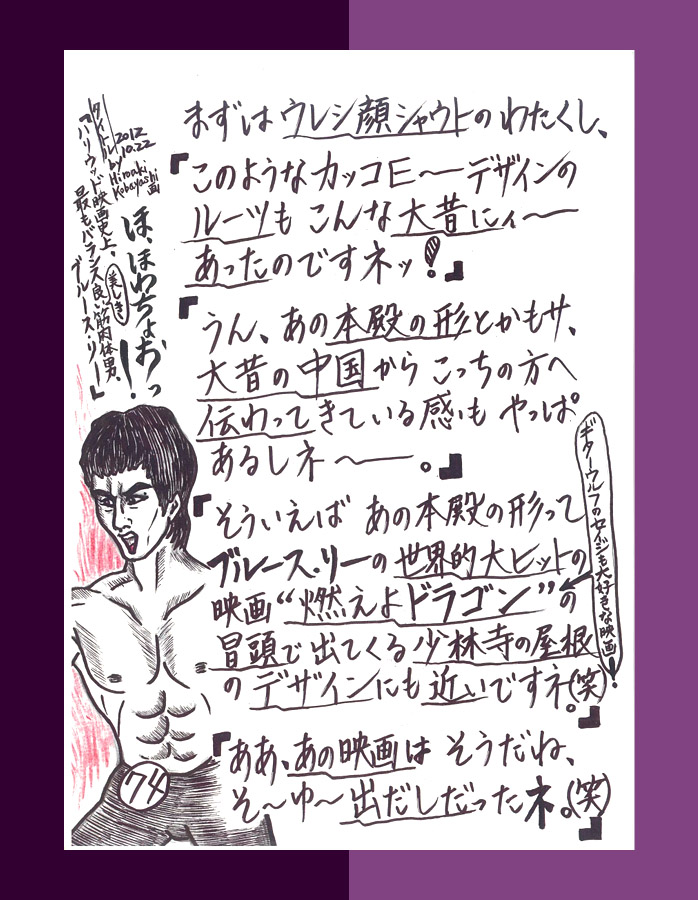 まずはウレシ顔シャウトのわたくし、
『このようなカッコE〜デザインの
ルーツもこんな大昔にィ〜
あったのですネッ!』
『うん、あの本殿の形とかもサ、
大昔の中国からこっちの方へ
伝わってきている感もやっぱ
あるしネ〜。』
『そういえばあの本殿の形って
ブルース・リーの世界的大ヒットの
映画“燃えよドラゴン”の
冒頭で出てくる少林寺の屋根
のデザインにも近いですネ。(笑)』
ギターウルフのセイジも大好きな映画!
『ああ、あの映画はそうだね、
そ〜ゆ〜出だしだったネ。(笑)』
タイトル
『ハリウッド映画史上、
最もバランス良い筋肉体男、
美しき
ブルース・リー』
2012
10.22
by
Hiroaki
Kobayashi
画
ほ、ほわちょおっ!
74